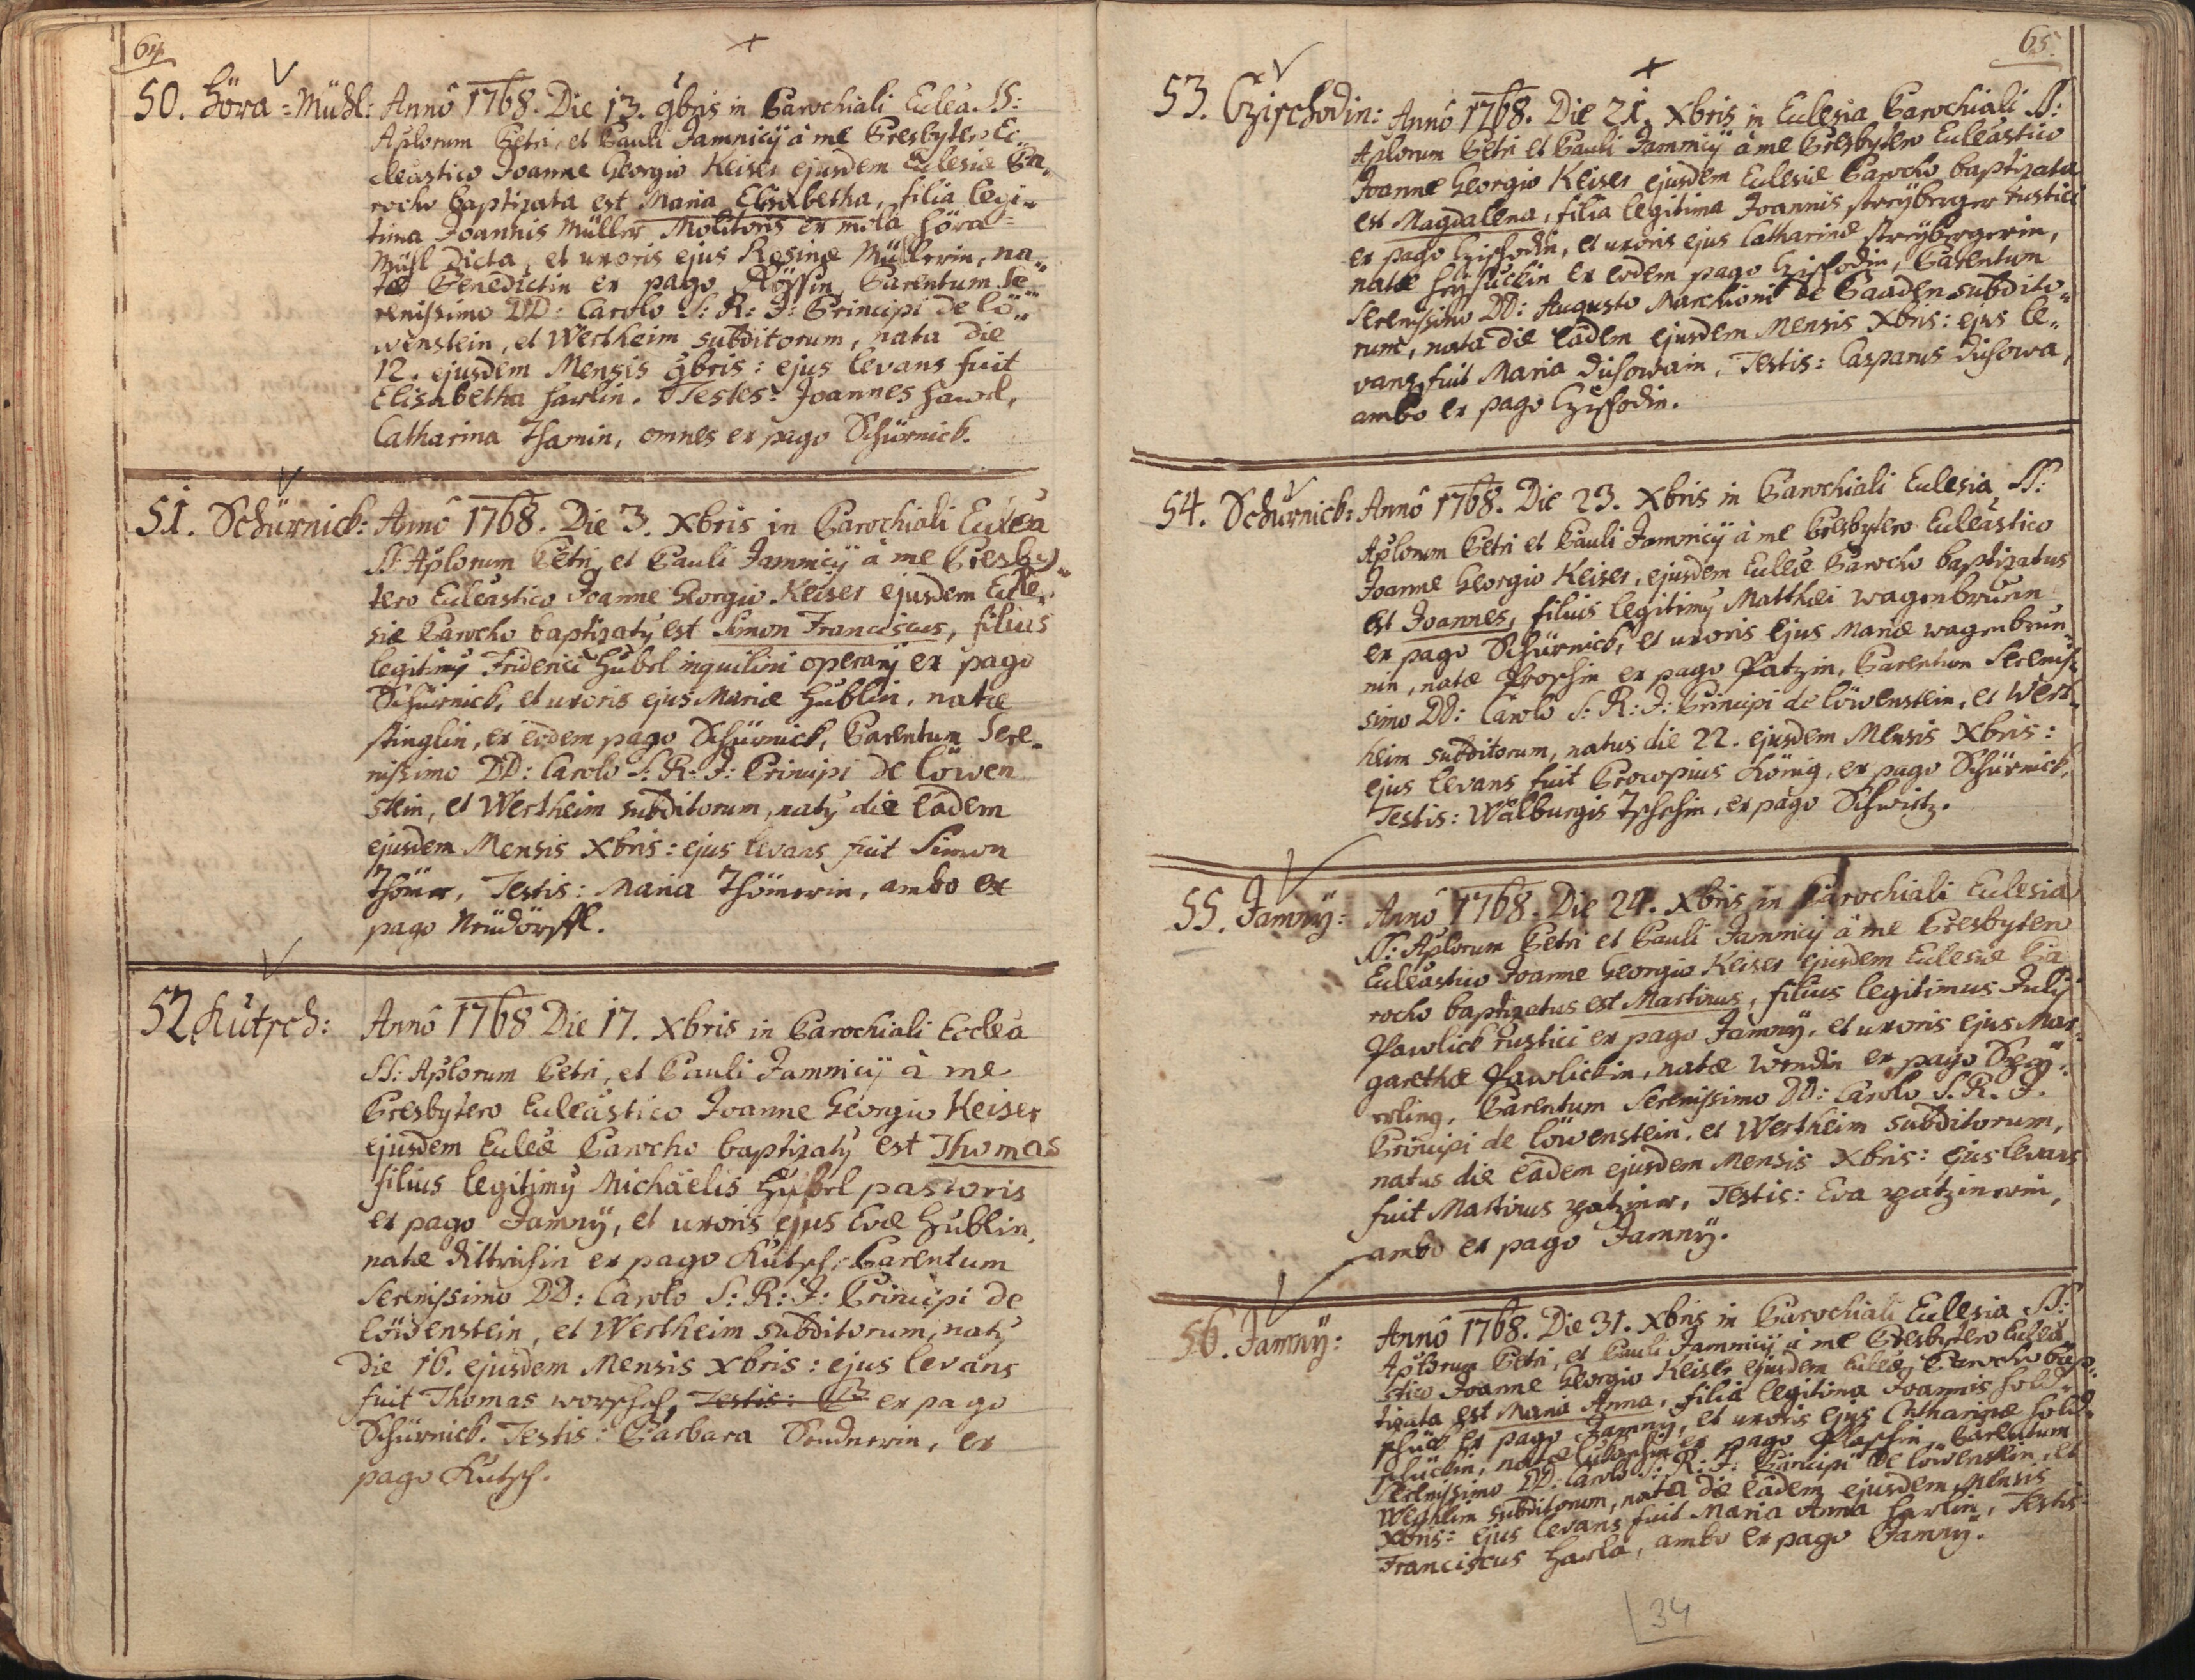 64
50. Höra=Mühl: Annô 1768. Die 13. 9bris in Parochiali Eccleâ. SS:
Aplorum Petri, et Pauli Jamnicÿ à me Presbytero Ec„
cleastico Joanne Georgio Keiser ejusdem Ecclesiæ Pa„
rocho baptizata est Maria Elisabetha, filia legi„
tima Joannis Müller Molitoris ex mola Höra=
Mühl dicta, et uxoris ejus Rosinæ Müllerin, na„
tæ Benedictin ex pago Parentum Se„
renissimo DD: Carolo S: R: I: Principi de Lö„
wenstein, et Wertheim subditorum, nata die
12. ejusdem Mensis 9bris: ejus levans fuit
Elisabetha Hawlin. Testes: Joannes Hawel,
Catharina Thamin, omnes ex pago Schürnick.
51. Schürnick: Annô 1768. Die 3. Xbris in Parochiali Eccleâ
SS: Aplorum Petri, et Pauli Jamnicÿ à me Presby„
tero Eccleastico Joanne Georgio Keiser ejusdem Eccle„
siæ Parocho baptizatꝰ est Simon Franciscus, filius
legitimꝰ Friderici Hubel inquilini operarÿ ex pago
Schürnick, et uxoris ejus Mariæ Hublin, natæ
Stinglin, ex eodem pago Schürnick, Parentum Sere„
nissimo DD: Carolo S: R: I: Principi de Löwen
stein, et Wertheim subditorum, natꝰ die eâdem
ejusdem Mensis Xbris: ejus levans fuit Simon
Thömer, Testis: Maria Thömerin, ambo ex
pago Neüdörffl.
52. Kutsch: Annô 1768 Die 17. Xbris in Parochiali Eccleâ
SS: Aplorum Petri, et Pauli Jamnicÿ à me
Presbytero Eccleastico Joanne Georgio Keiser
ejusdem Eccleæ Parocho baptizatꝰ est Thomas
filius legitimꝰ Michäelis Hubel pastoris
ex pago Jamnÿ, et uxoris ejus Evæ Hublin,
natæ Dittrichin ex pago Kutsch, Parentum
Serenissimo DD: Carolo S: R: I: Principi de
Löwenstein, et Wertheim subditorum, natꝰ
die 16. ejusdem Mensis Xbris: ejus levans
fuit Thomas Testis: ex pago
Schürnick. Testis: Barbara ex
pago Kutsch.
65
53. Czischodin: Annô 1768. Die 21. Xbris in Ecclesia Parochiali SS:
Aplorum Petri et Pauli Jamnicÿ à me Presbytero Eccleastico
Joanne Georgio Keiser ejusdem Ecclesiæ Parocho baptizata
est Magdalena, filia legitima Joannis Streÿberger rustici
ex pago Czischodin, et uxoris ejus Catharinæ Streÿbergerin,
natæ ex eodem pago Czischodin, Parentum
Serenissimo DD: Augusto Marchioni de Baaden subdito„
rum, nata die eâdem ejusdem Mensis Xbris: ejus le„
vans fuit Maria Duhowain, Testis: Casparus Duhowa,
ambo ex pago Czischodin.
54. Schürnick: Annô 1768. Die 23. Xbris in Parochiali Ecclesia SS:
Aplorum Petri et Pauli Jamnicÿ à me Presbytero Eccleastico
Joanne Georgio Keiser, ejusdem Eccleæ Parocho baptizatus
est Joannes, filius legitimꝰ Matthæi Wagenbrunn
ex pago Schürnick, et uxoris ejus Mariæ Wagenbrun„
nin, natæ Proschin ex pago Patzin, Parentum Serenis„
simo DD: Carolo S: R: I: Principi de Löwenstein, et Wert„
heim subditorum, natus die 22. ejusdem Mensis Xbris:
ejus levans fuit Procopius König, ex pago Schürnick,
Testis: Walburgis ex pago Schwitz.
55. Jamnÿ: Annô 1768. Die 24. Xbris in Parochiali Ecclesia
SS: Aplorum Petri et Pauli Jamnicÿ à me Presbytero
Eccleastico Joanne Georgio Keiser ejusdem Ecclesiæ Pa
rocho baptizatus est Martinus, filius legitimus Julÿ
Pawlick rustici ex pago Jamnÿ, et uxoris ejus Mar„
garethæ Pawlickin, natæ ex pago
Parentum Serenissimo DD: Carolo S. R. I.
Principi de Löwenstein, et Wertheim subditorum,
natus die eâdem ejusdem Mensis Xbris: ejus levans
fuit Martinus Patziner, Testis: Eva Patzinerin,
ambo ex pago Jamnÿ.
56. Jamnÿ: Annô 1768. Die 31. Xbris in Parochiali Ecclesia SS:
Aplorum Petri, et Pauli Jamnicÿ à me Presbytero Ecclea„
stico Joanne Georgio Keiser ejusdem Eccleæ Parocho bap„
tizata est Maria Anna, filia legitima Joannis Hold„
schück ex pago Jamnÿ, et uxoris ejus Catharinæ Hold„
schückin, natæ ex pago Plaschin, Parentum
Serenissimo DD: Carolo S: R: I: Principi de Löwenstein, et
Wertheim subditorum, nata die eâdem ejusdem Mensis
Xbris: ejus levans fuit Maria Anna Hawlin, Testis
Franciscus Hawla, ambo ex pago Jamnÿ.
34